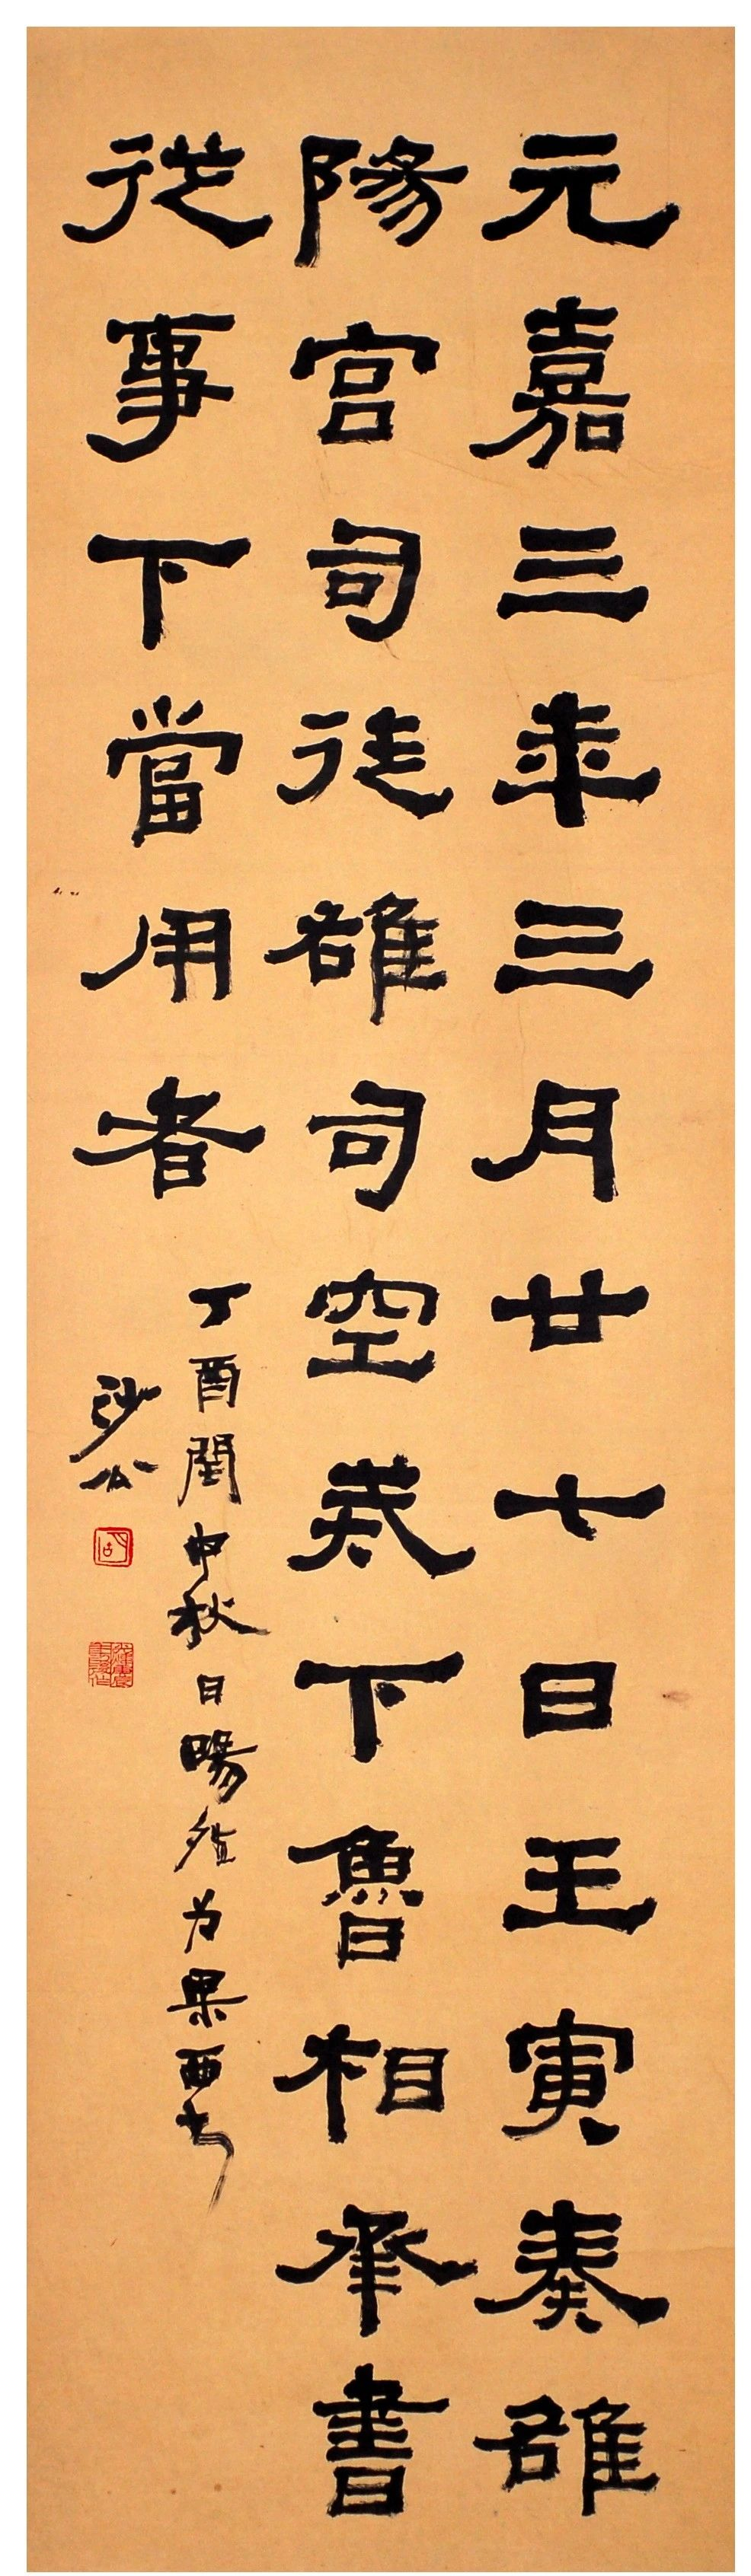 元嘉三年三月廿七日壬寅奏雒
陽宮司徒雒司空戒下魯相承書
從事下當用者
丁酉閏中秋日暘
沙公